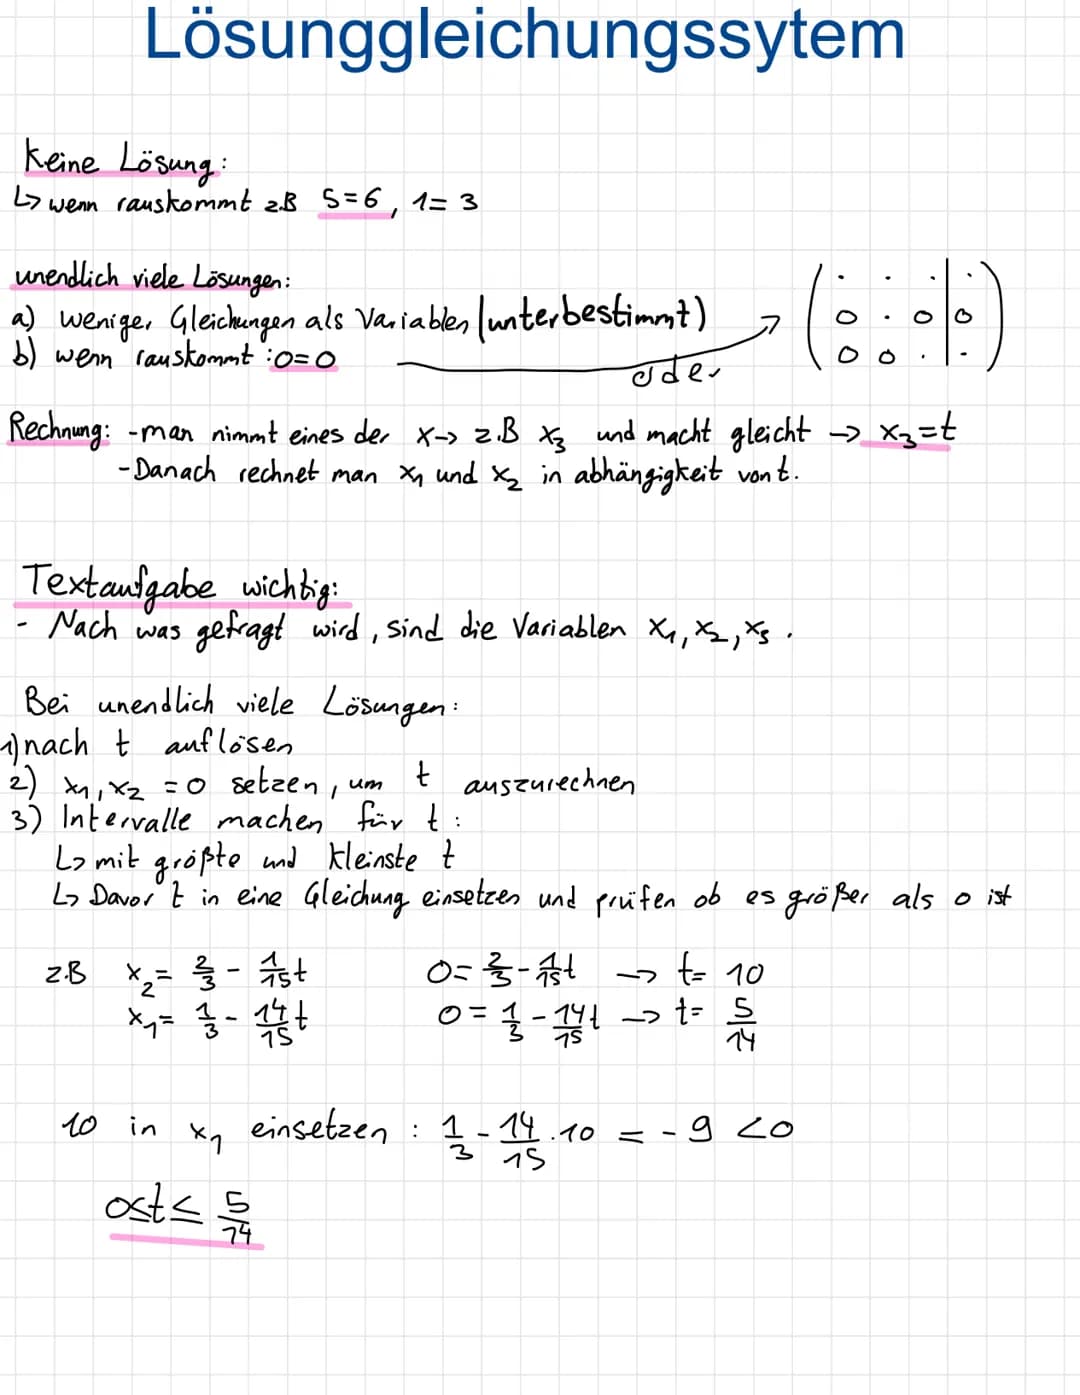 Lösunggleichungssytem
Keine Lösung:
↳ wenn rauskommt z.B 5=6, 1=3
unendlich viele Lösungen:
a) weniger Gleichungen als Variablen (unterbestimmt)
b) wenn rauskommt: 0=0
oder
( . . . | . )
( 0 . 0 | 0 )
( 0 0 . | . )
Rechnung: - man nimmt eines der x → z.B x₃ und macht gleicht → x₃=t
- Danach rechnet man x₁ und x₂ in abhängigkeit von t.
Textaufgabe wichtig:
- Nach was gefragt wird, sind die Variablen x₁, x₂, x₃.
Bei unendlich viele Lösungen:
1) nach t auflösen
2) x₁, x₂ = 0 setzen, um t auszurechnen
3) Intervalle machen für t:
↳ mit größte und kleinste t
↳ Davor t in eine Gleichung einsetzen und prüfen ob es größer als 0 ist
z.B x₂= 2/3 - 1/15 t 0= 2/3 - 1/15 t → t= 10
x₁= 1/3 - 14/15 t 0= 1/3 - 14/15 t → t= 5/14
10 in x₁ einsetzen: 1/3 - 14/15 · 10 = -9 <0
0≤t≤ 5/14